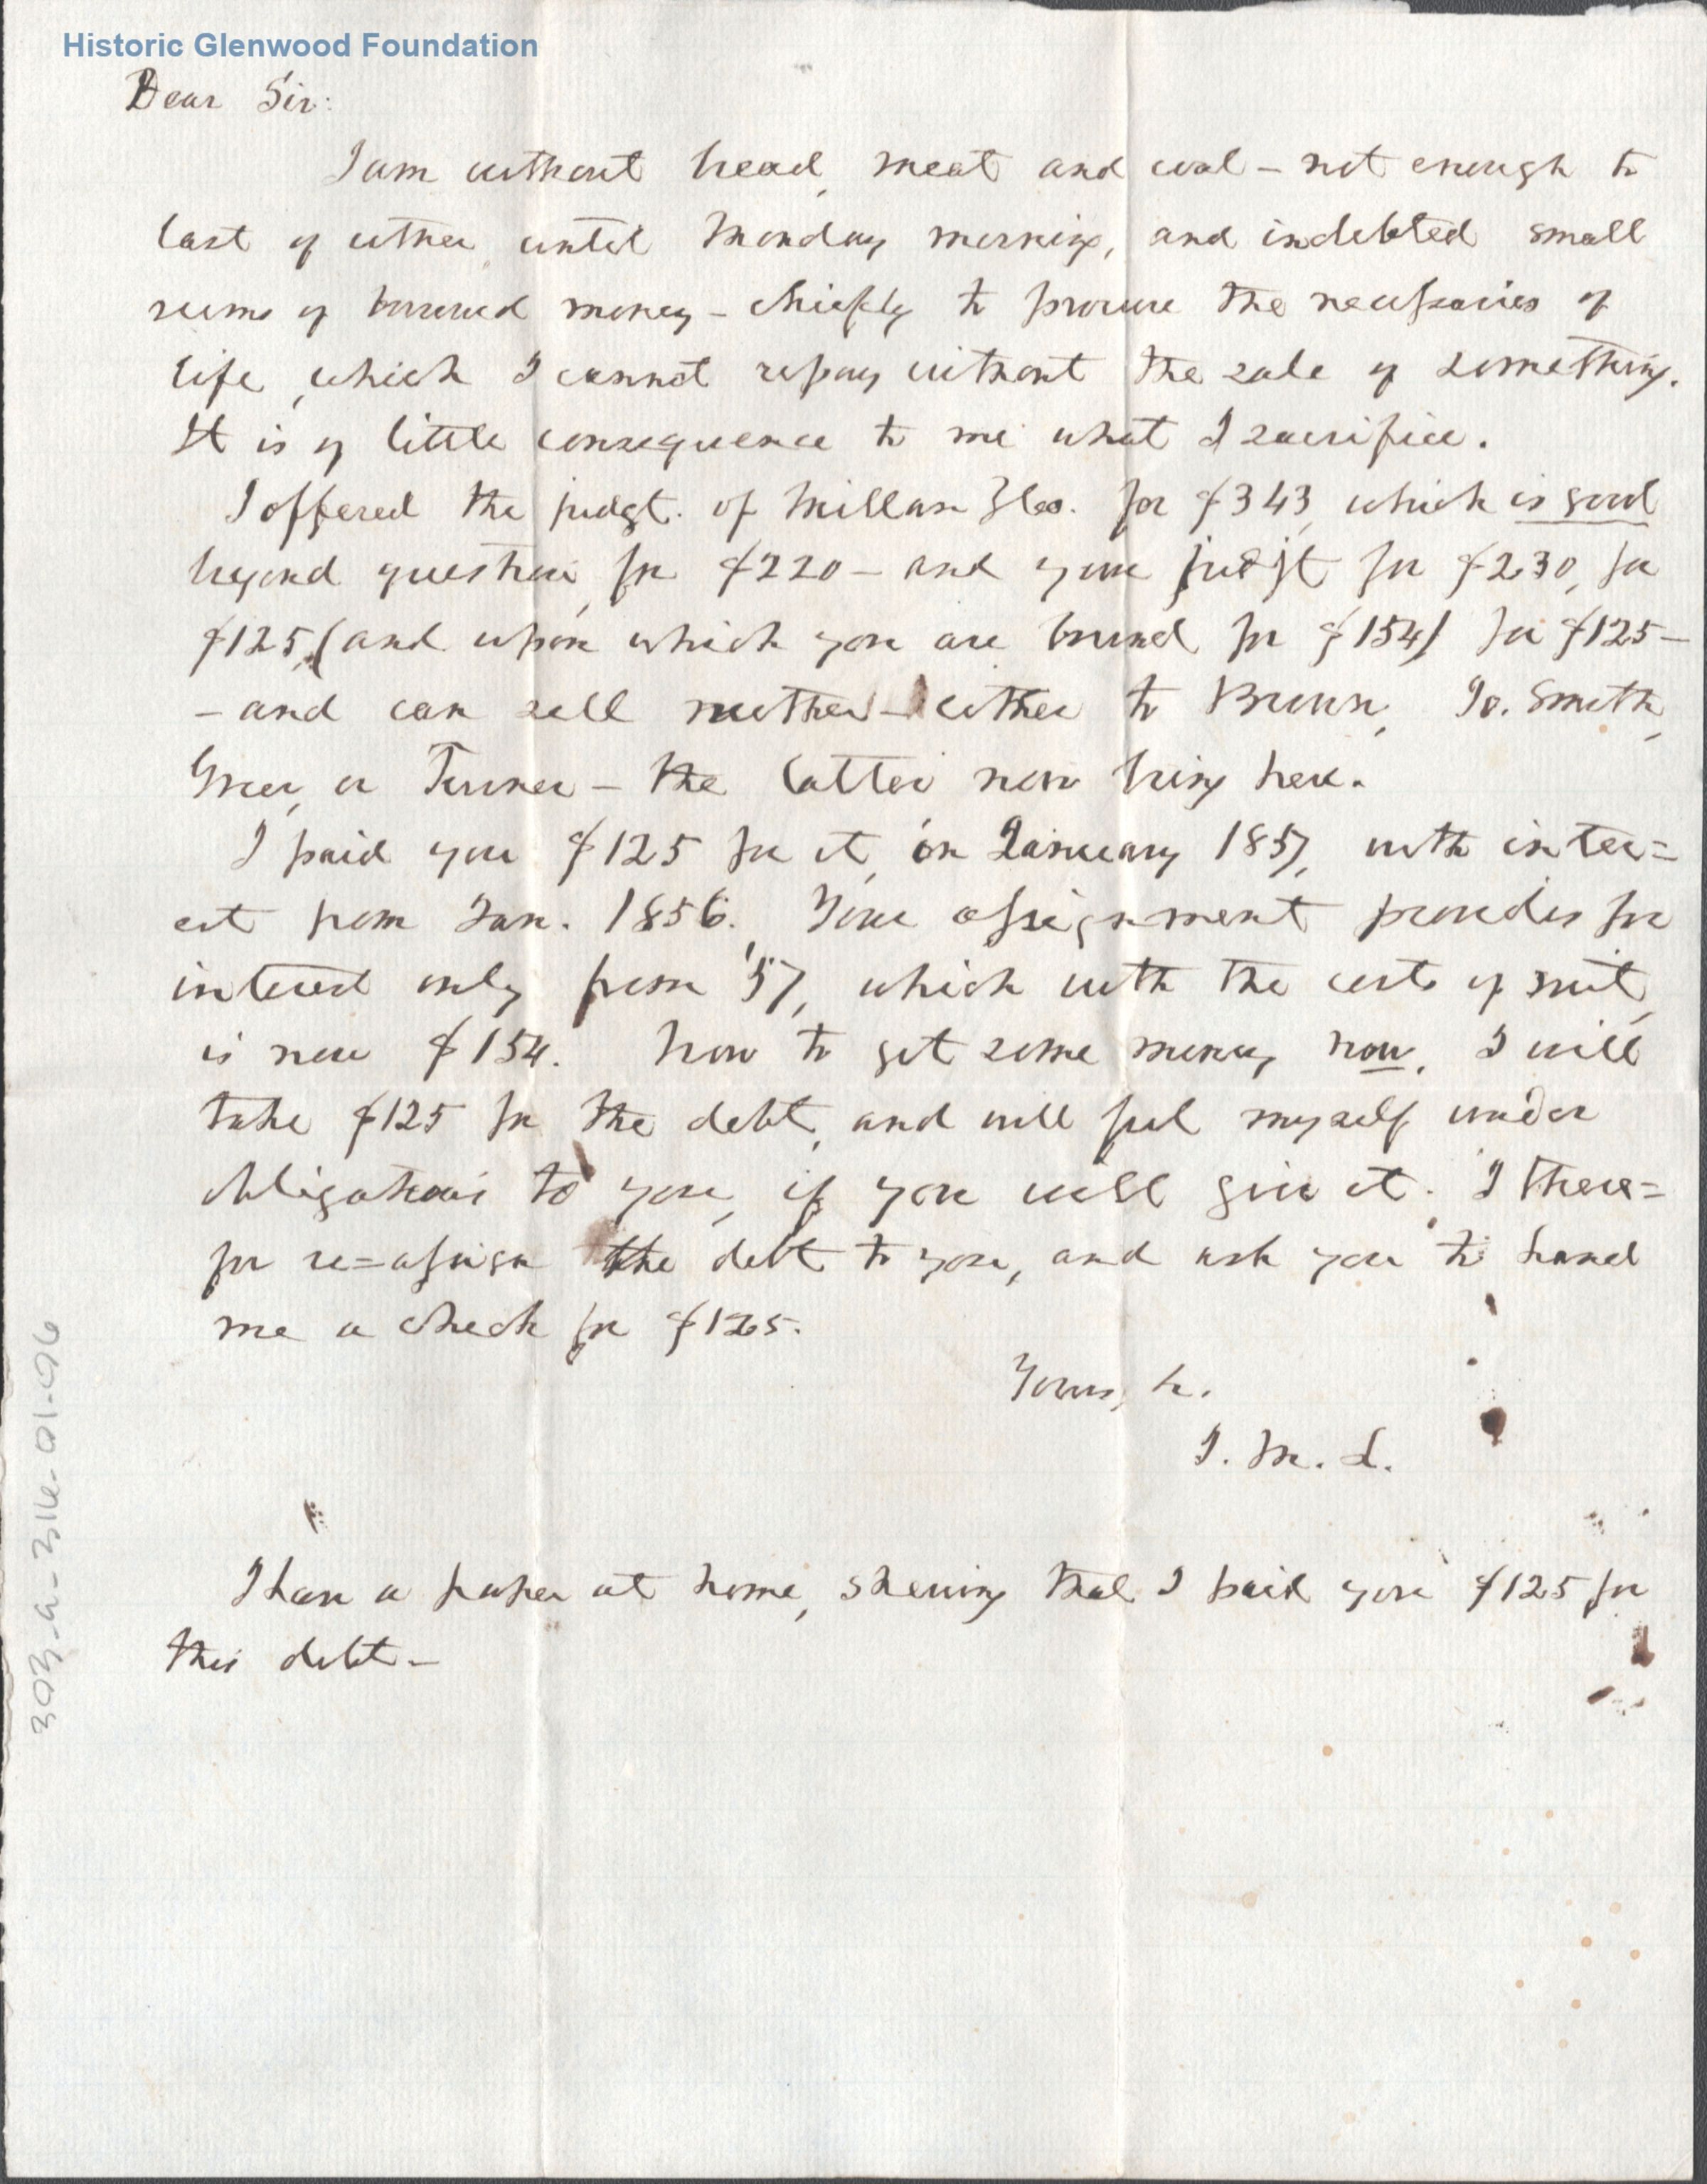 Historic Glenwood Foundation
Dear Sir:
I am without bread, meat and coal – not enough to
last of either until Monday morning, and indebted small
sums of borrowed money – chiefly to procure the necessaries of
life, which I cannot repay without the sale of something.
It is of little consequence to me what I sacrifice.
I offered the judgt. of Millan & Co. for $343, which is good
beyond question, for $220 – and your judgt for $230, for
$125, (and upon which you are bound for $154) for $125 –
– and can sell neither – either to Brown, Jo. Smith,
Greer, or Turner – the latter now being here.
I paid you $125 for it, on January 1857, with inter=
est from Jan. 1856. Your assignment provides for
interest only from '57, which with the costs of suit,
is now $154. Now to get some money now, I will
take $125 for the debt, and will feel myself under
obligations to you, if you will give it. I there=
for re=assign the debt to you, and ask you to hand
me a check for $125.
Yours, &c.
J. M. L.
I have a paper at home, shewing that I paid you $125 for
this debt –
303-a-316-01-96